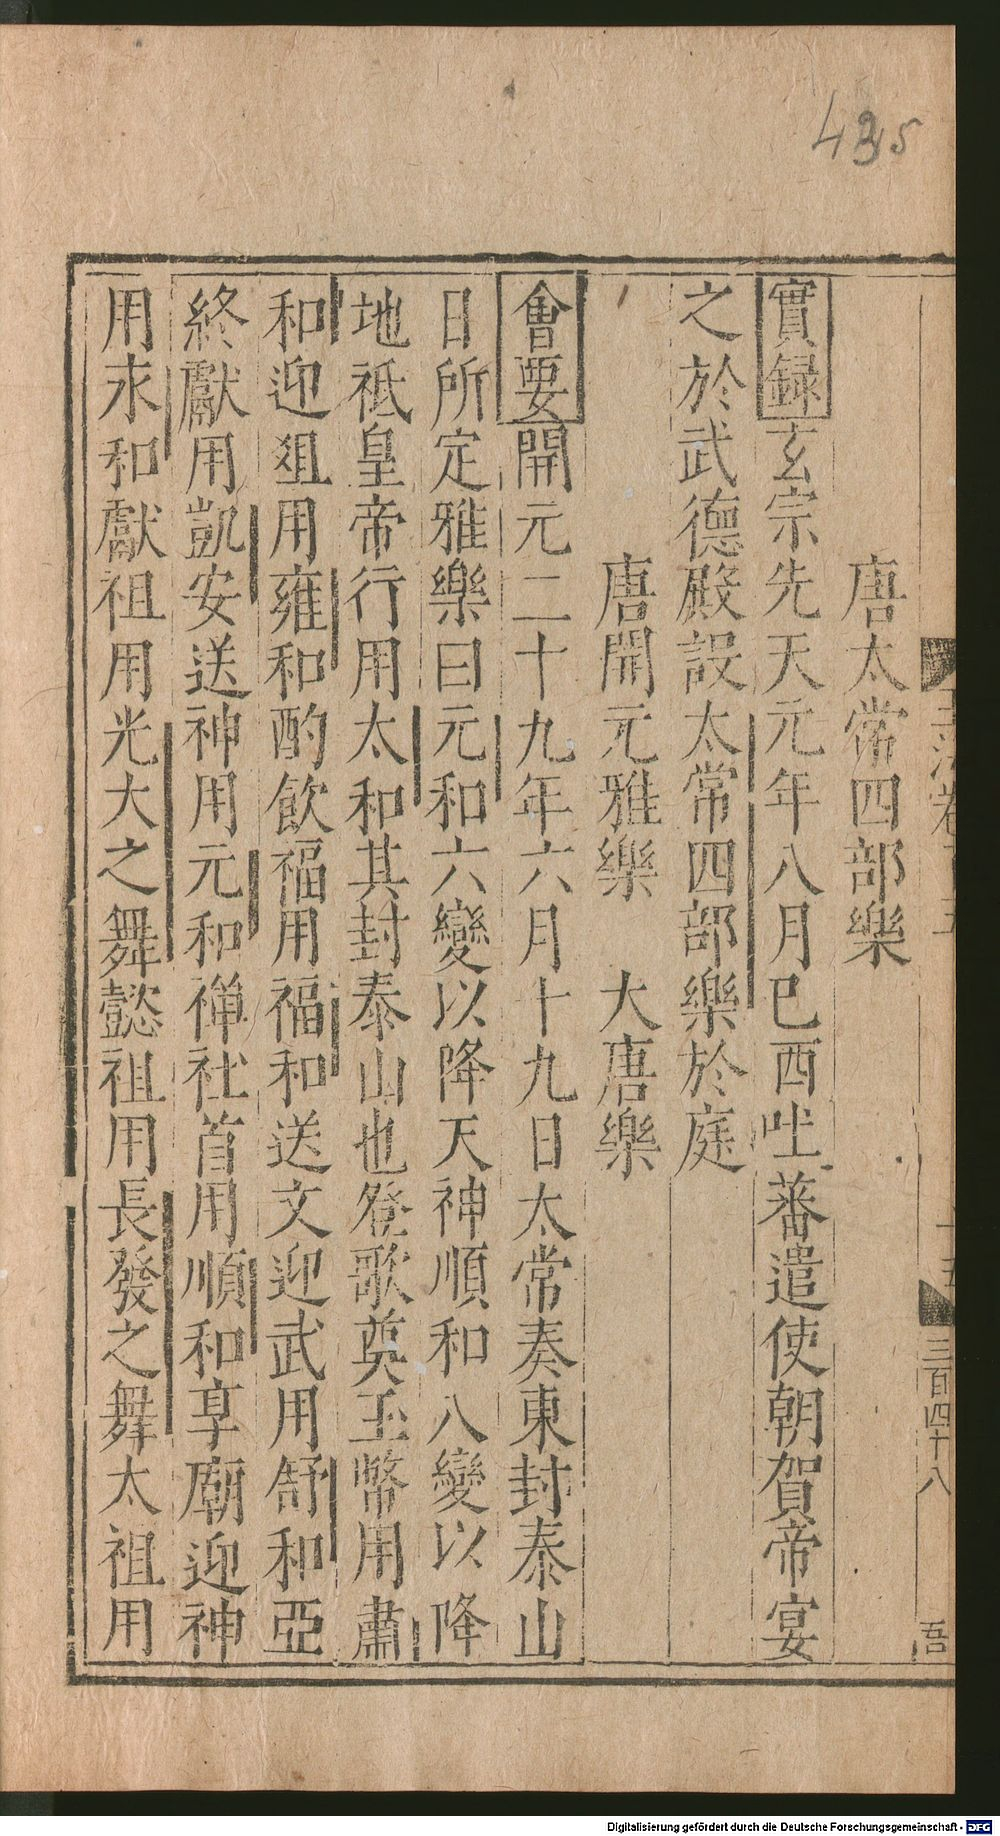 435
三百四十八
吾
唐太常四部樂
實録玄宗先天元年八月己酉吐蕃遣使朝賀帝宴
之於武德殿設太常四部樂於庭
唐開元雅樂　大唐樂
會要開元二十九年六月十九日太常奏東封泰山
日所定雅樂曰元和六變以降天神順和八變以降
地祗皇帝行用太和其封泰山也登歌奠玉幣用肅
和迎俎用雍和酌飲福用福和送文迎武用舒和亞
終獻用凱安送神用元和禪社首用順和享廟迎神
用永和獻祖用光大之舞懿祖用長發之舞太祖用
Digitalisierung gefördert durch die Deutsche Forschungsgemeinschaft - DFG